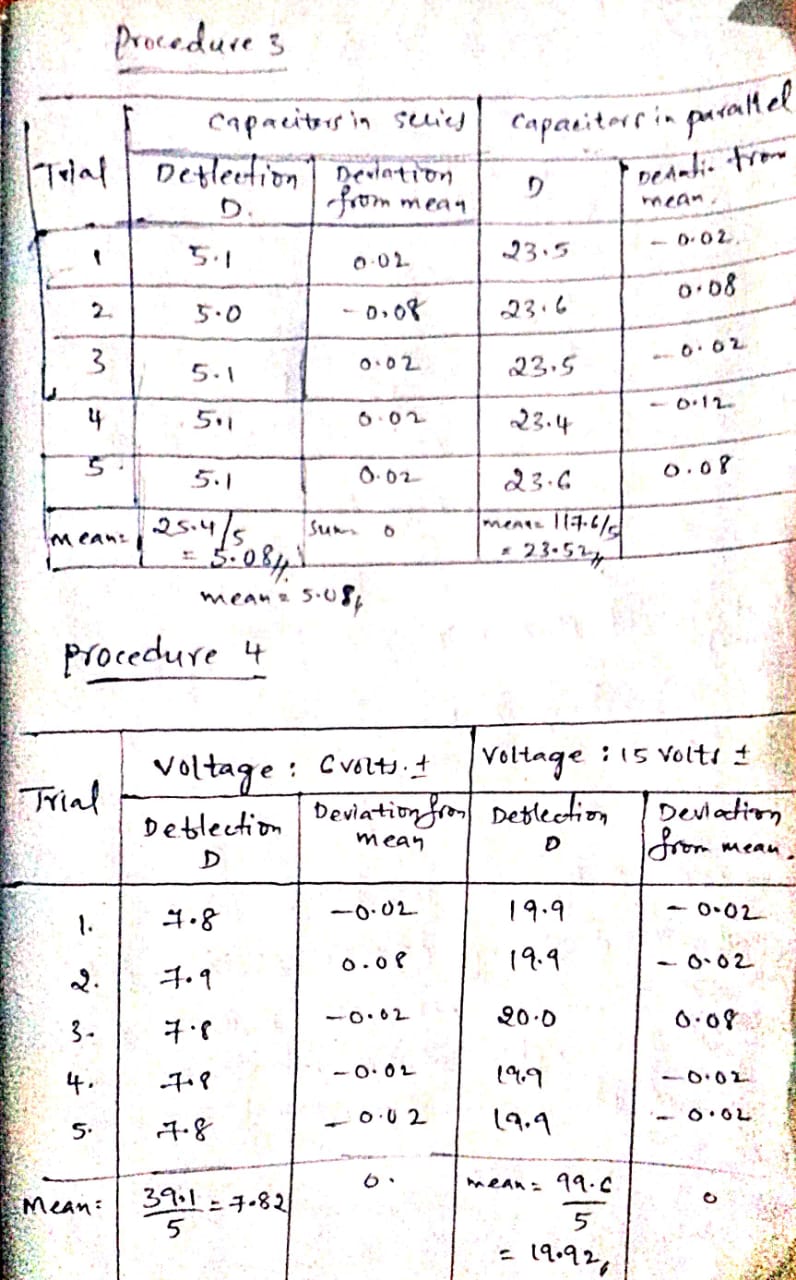 Procedure 3
Capacitors in series Capacitors in parallel
Trial Deflection D. Deviation from mean D Deviati. from mean.
1 5.1 0.02 23.5 - 0.02.
2 5.0 - 0.08 23.6 0.08
3 5.1 0.02 23.5 - 0.02
4 5.1 0.02 23.4 - 0.12
5. 5.1 0.02 23.6 0.08
mean= 25.4/5 sum= 0 mean= 117.6/5
= 5.08 = 23.52
mean = 5.08
Procedure 4
Trial Voltage : 6 volts. ± Voltage : 15 Volts ±
Deflection D Deviation from mean Deflection D Deviation from mean.
1. 7.8 -0.02 19.9 - 0.02
2. 7.9 0.08 19.9 - 0.02
3. 7.8 -0.02 20.0 0.08
4. 7.8 -0.02 19.9 -0.02
5. 7.8 - 0.02 19.9 - 0.02
Mean: 39.1/5 = 7.82 0. mean = 99.6/5 0
= 19.92